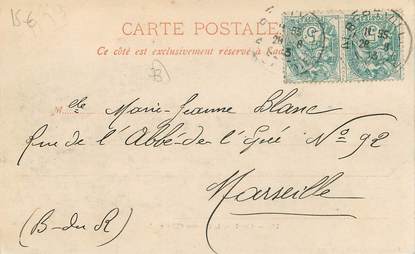 CARTE POSTALE
Ce côté est exclusivement réservé à
Mlle Marie-Jeanne Blanc
rue de l'Abbé-de-l'Epée No 92
Marseille
(B-du R)